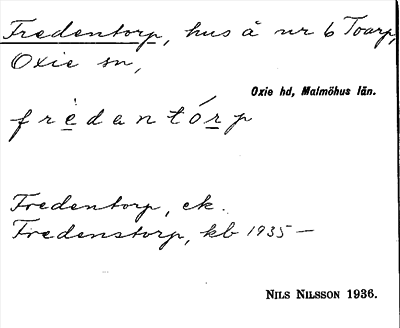 Fredentorp, hus å nr 6 Toarp,
Oxie sn,
Oxie hd, Malmöhus län.
f r ė d a n t ó r p
Fredentorp, ek.
Fredenstorp, kb 1935 —
NILS NILSSON 1936.